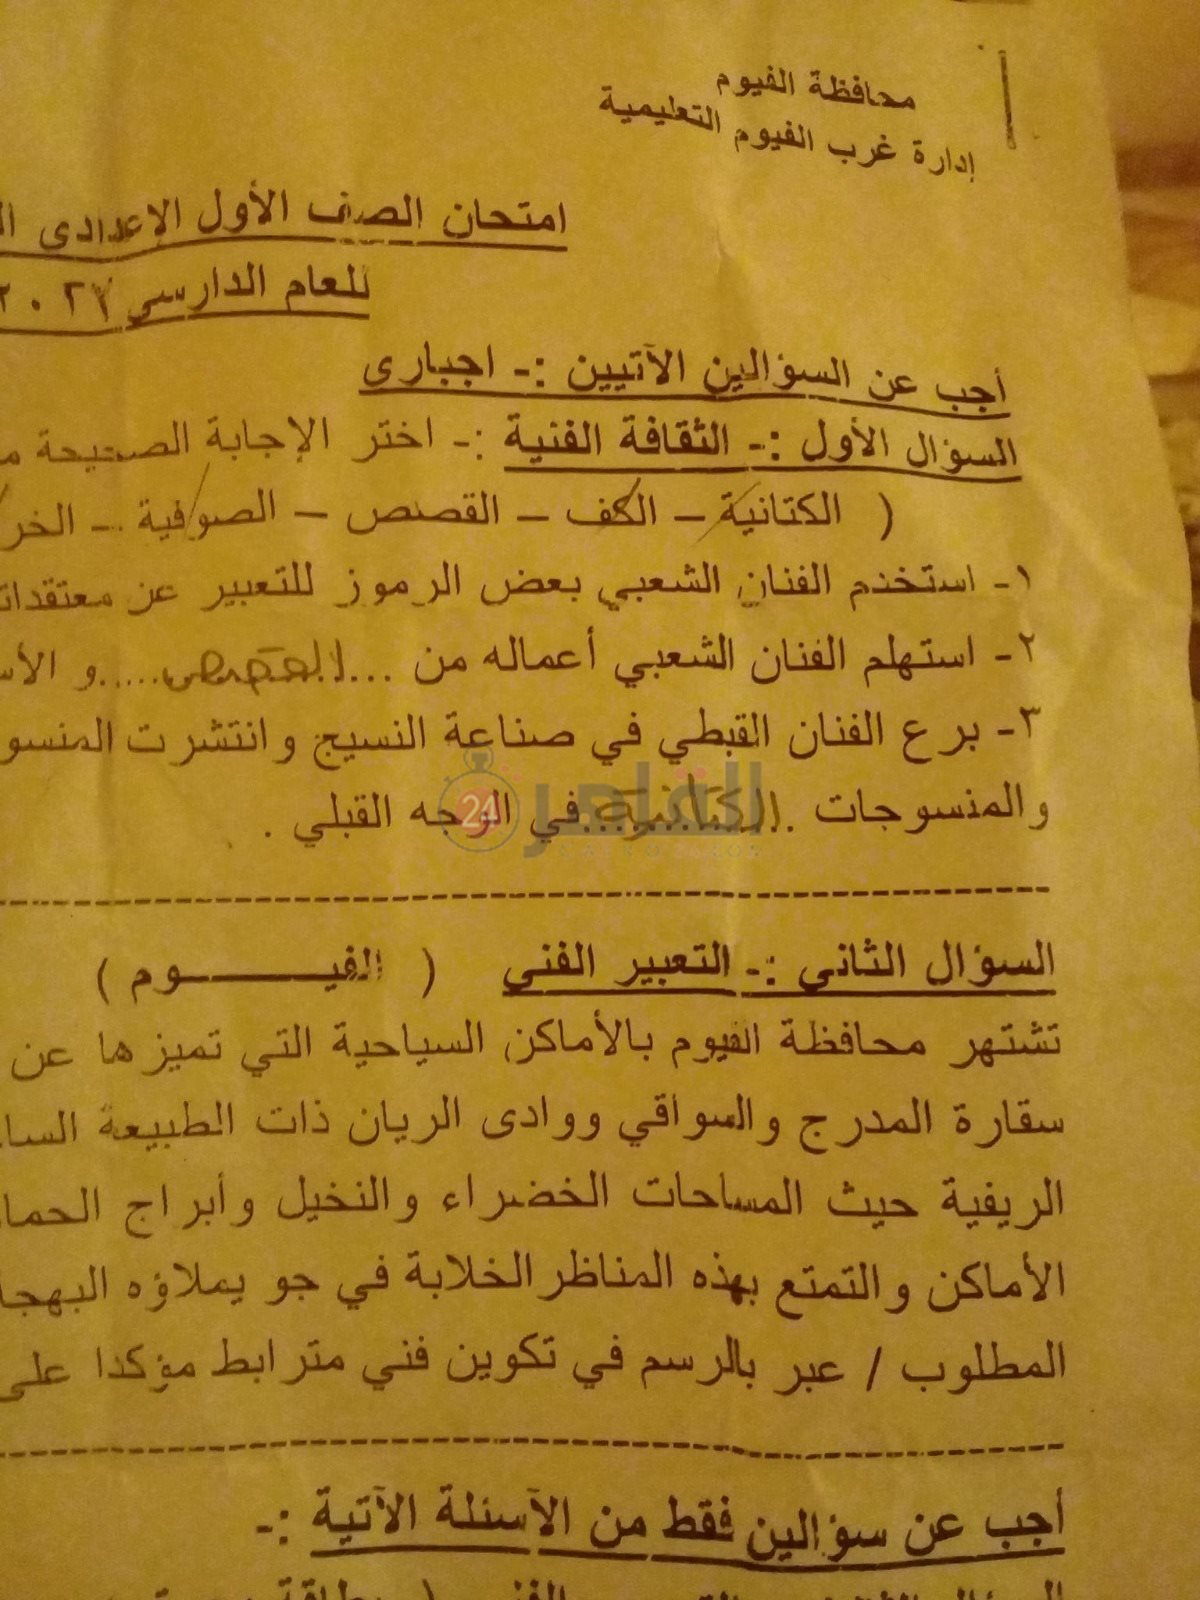 محافظة الفيوم
إدارة غرب الفيوم التعليمية
امتحان الصف الأول الإعدادى
للعام الدارسي
أجب عن السؤالين الآتيين :- اجبارى
السؤال الأول :- الثقافة الفنية :- اختر الإجابة الصحيحة
( الكتانية – الكف – القصص – الصوفية – الخر
١- استخدم الفنان الشعبي بعض الرموز للتعبير عن معتقدات
٢- استهلم الفنان الشعبي أعماله من ...القصص.....و الأس
٣- برع الفنان القبطي في صناعة النسيج وانتشرت المنسو
والمنسوجات ..الكتانية..في الوجه القبلي .
القاهرة 24
CAIRO
السؤال الثانى :- التعبير الفني ( الفيـــــوم )
تشتهر محافظة الفيوم بالأماكن السياحية التي تميزها عن
سقارة المدرج والسواقي ووادى الريان ذات الطبيعة السا
الريفية حيث المساحات الخضراء والنخيل وأبراج الحما
الأماكن والتمتع بهذه المناظر الخلابة في جو يملاؤه البهجة
المطلوب / عبر بالرسم في تكوين فني مترابط مؤكدا على
أجب عن سؤالين فقط من الآسئلة الآتية :-